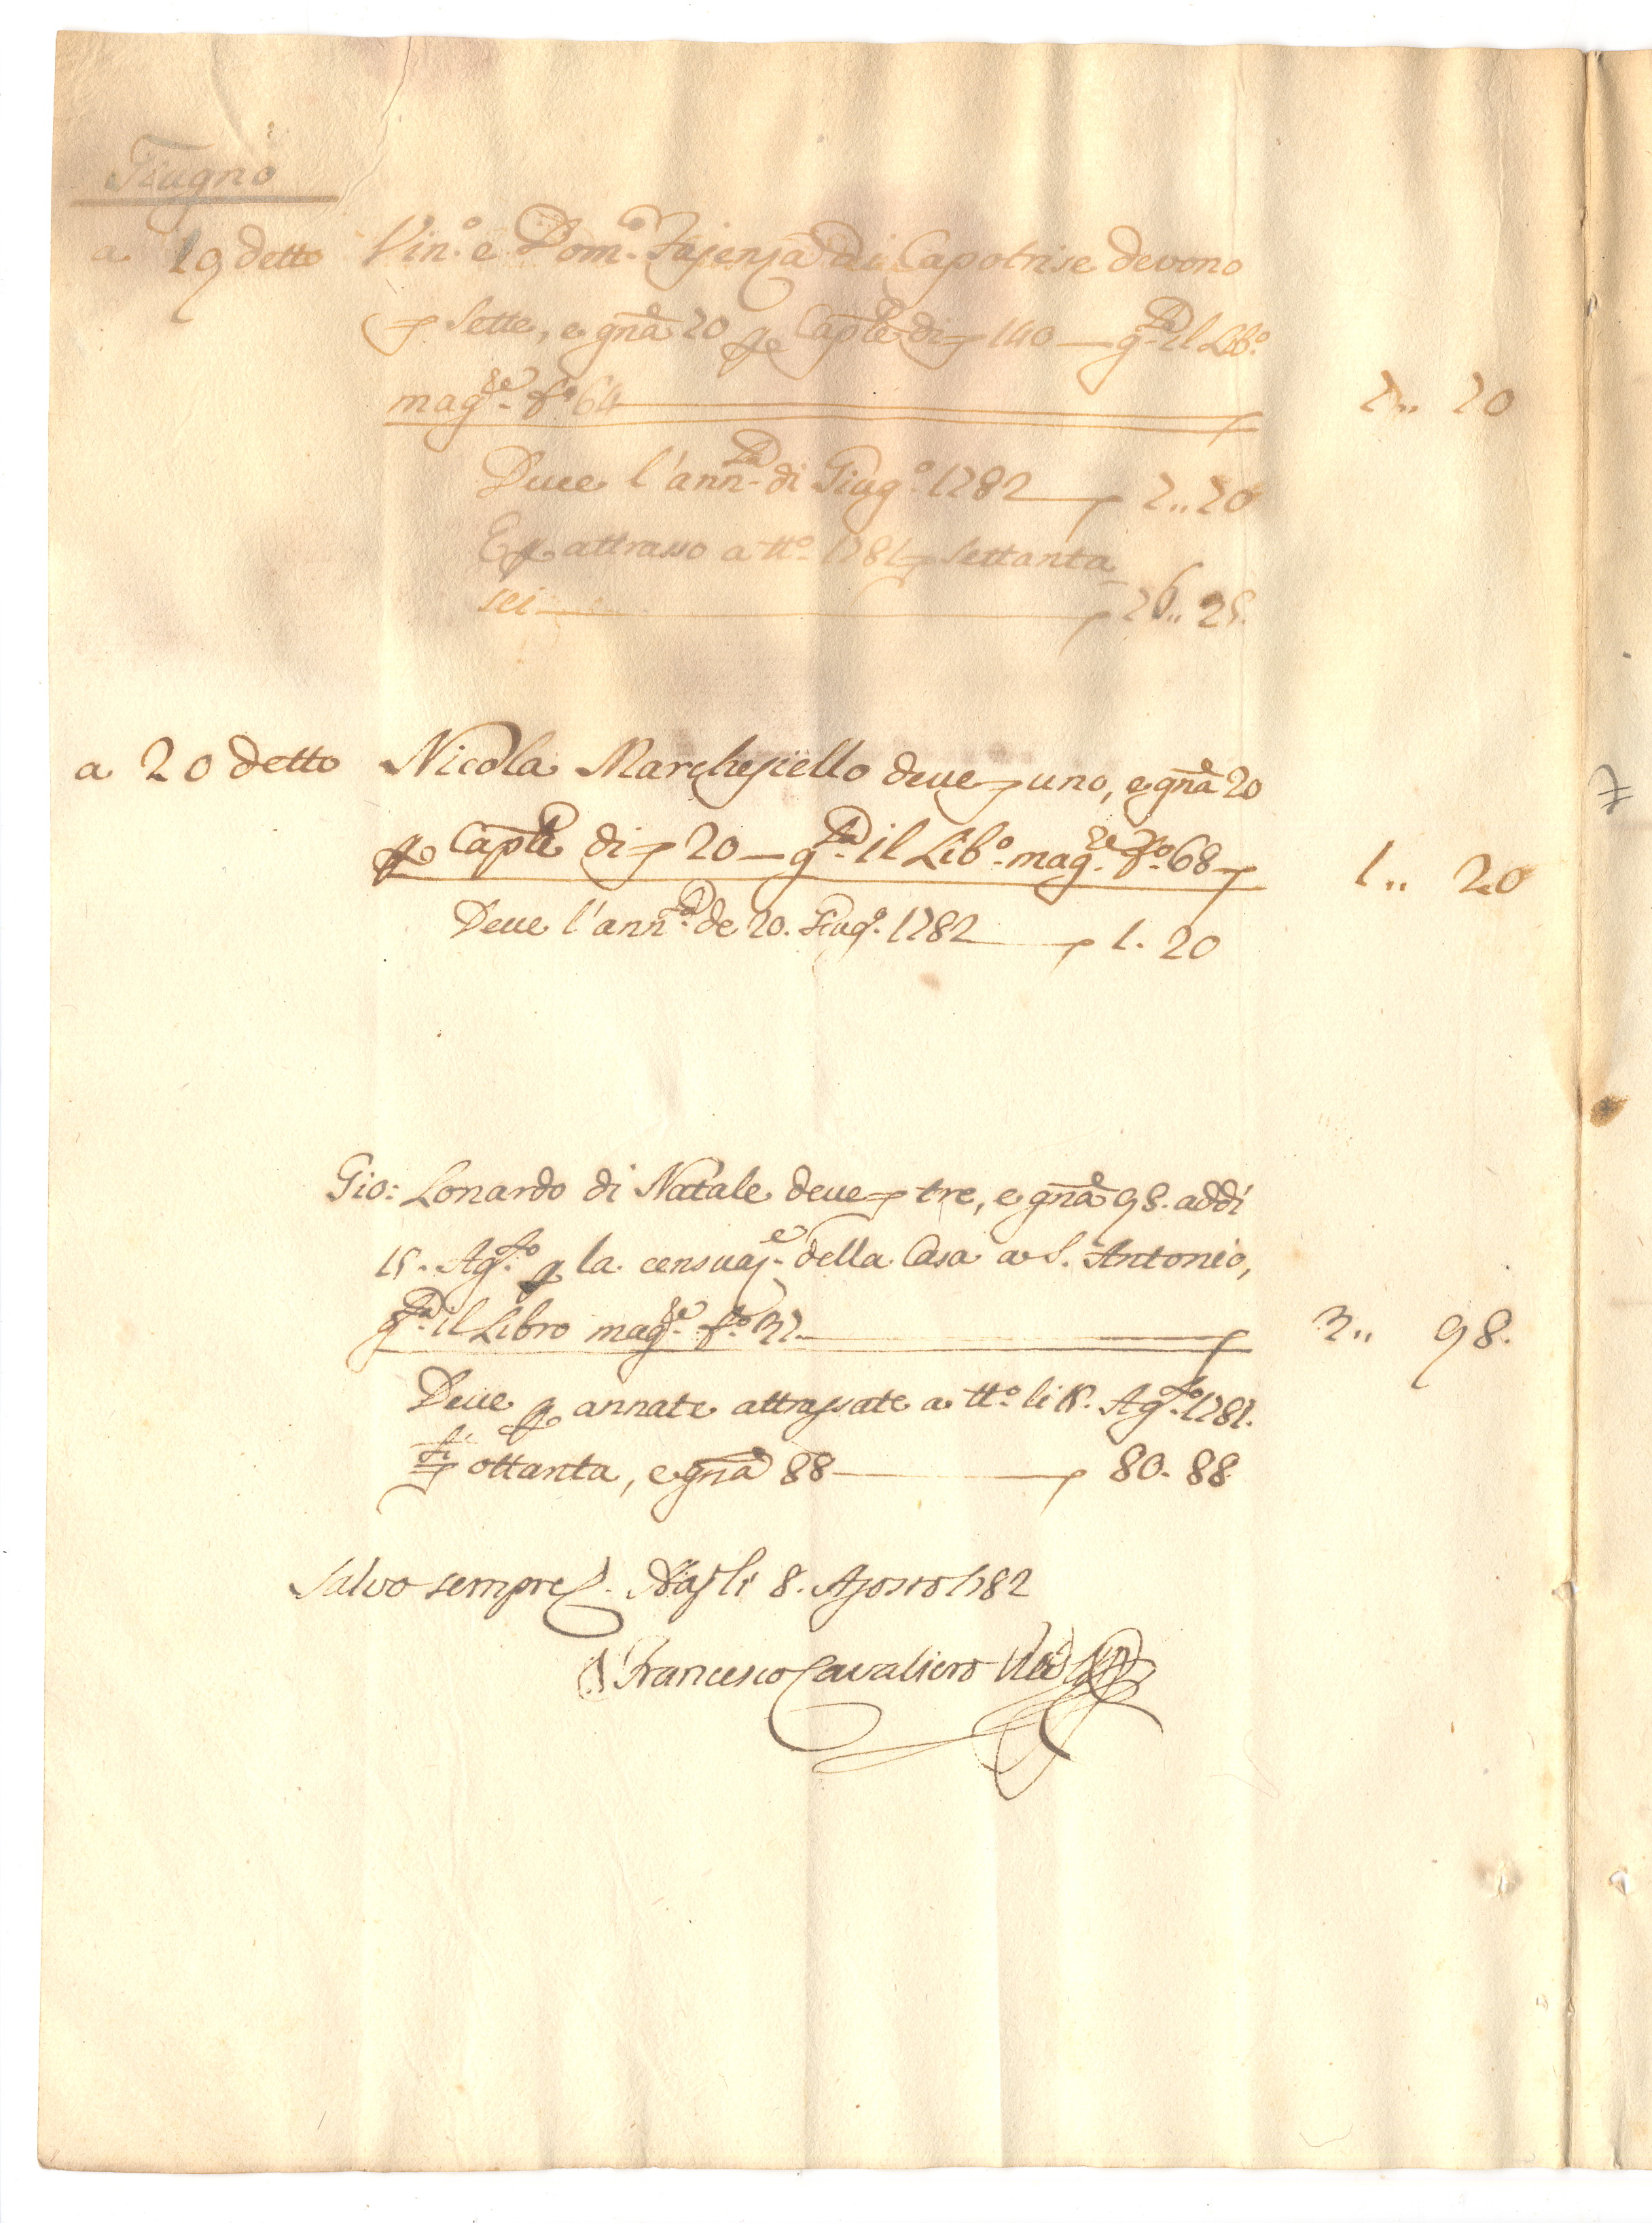 Giugno
a 19 detto Vin.º e Dom.º Fajenza di Capotrise devono
sette, e gnã 20 p Cap̃le di 140 — g.ta il Lib.º
mag.re f.º 64 7.. 20
Deve l'ann.ta di Giug.º 1782 7.. 20
E p attrasso a tt.º 1781 settanta
sei 76.. 25.
a 20 detto Nicola Marchesiello deve uno, e gnã 20
p Cap̃le di 20 — g.ta il Lib.º mag.re f.º 68 1.. 20
Deve l'ann.ta de 20. Giug.º 1782 1. 20
Gio: Lonardo di Natale deve tre, e gnã 98. addì
15. Ag.to p la censuaz.e della Casa a S. Antonio,
g.ta il Libro mag.re f.º 37 3.. 98.
Deve p annate attrassate a tt.º li 15. Ag.to 1781.
ottanta, e gnã 88 80. 88.
Salvo semp̃re. Nap̃li 8. Agosto 1782
Francesco Cavaliero
7